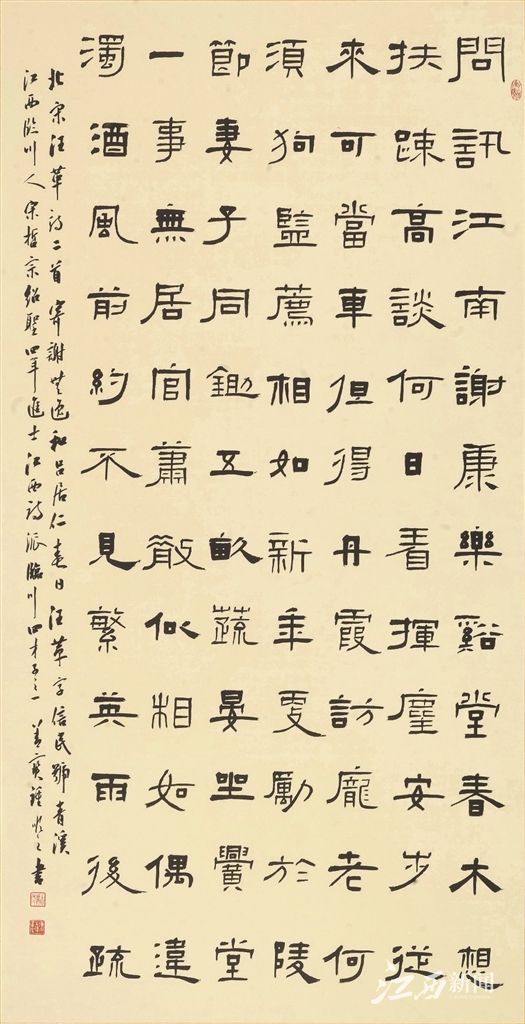 問訊江南謝康樂谿堂春木想
扶踈高談何日看揮麈安步從
來可當車但得丹霞訪龐老何
須狗監薦相如新年更勵於陵
節妻子同鋤五畝蔬晏坐黌堂
一事無居官蕭散似相如偶違
濁酒風前約不見繁英雨後疏
北宋汪革詩二首寄謝無逸和呂居仁春日汪革字信民號青溪
江西临川人宋哲宗紹聖四年進士江西詩派臨川四才子之一書
江西新闻